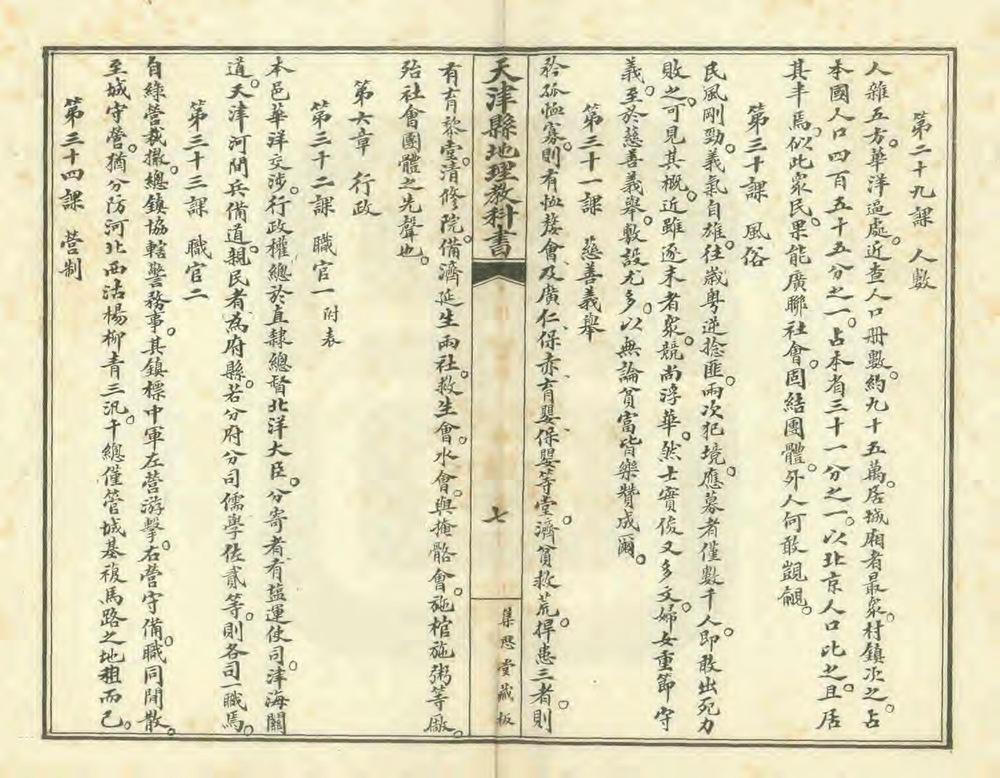 第二十九課　人數
人雜五方。華洋逼處。近查人口冊數。約九十五萬。居城廂者最衆。村鎮次之。占
本國人口四百五十五分之一。占本省三十一分之一。以北京人口比之。且居
其半焉。似此衆民。果能廣聯社會。固結團體。外人何敢覬覦。
第三十課　風俗
民風剛勁。義氣自雄。往歲粵逆捻匪兩次犯境。應募者僅數千人。即敢出死力
敗之。可見其概。近雖逐末者衆。競尚浮華。然士實俊又多文。婦女重節守
義。至於慈善義舉。敷設尤多。以無論貧富皆樂贊成爾。
第三十一課　慈善義舉
矜孤恤寡。則有恤嫠會。及廣仁、保赤、育嬰、保嬰等堂。濟貧救荒。捍患三者。則
天津縣地理教科書
七
集思堂藏板
有育黎堂。清修院。備濟延生兩社。救生會。水會。與掩骼會。施棺施粥等廠。
殆社會團體之先聲也。
第六章　行政
第三十二課　職官一　附表
本邑華洋交涉。行政權總於直隸總督北洋大臣。分寄者。有鹽運使司。津海關
道。天津河間兵備道。親民者為府縣。若分府分司儒學佐貳等。則各司一職焉。
第三十三課　職官二
自綠營裁撤。總鎮協轄警務事。其鎮標中軍左營游擊。右營守備。職同閒散。
至城守營。猶分防河北西沽楊柳青三汛。千總僅管城基複馬路之地租而已。
第三十四課　營制